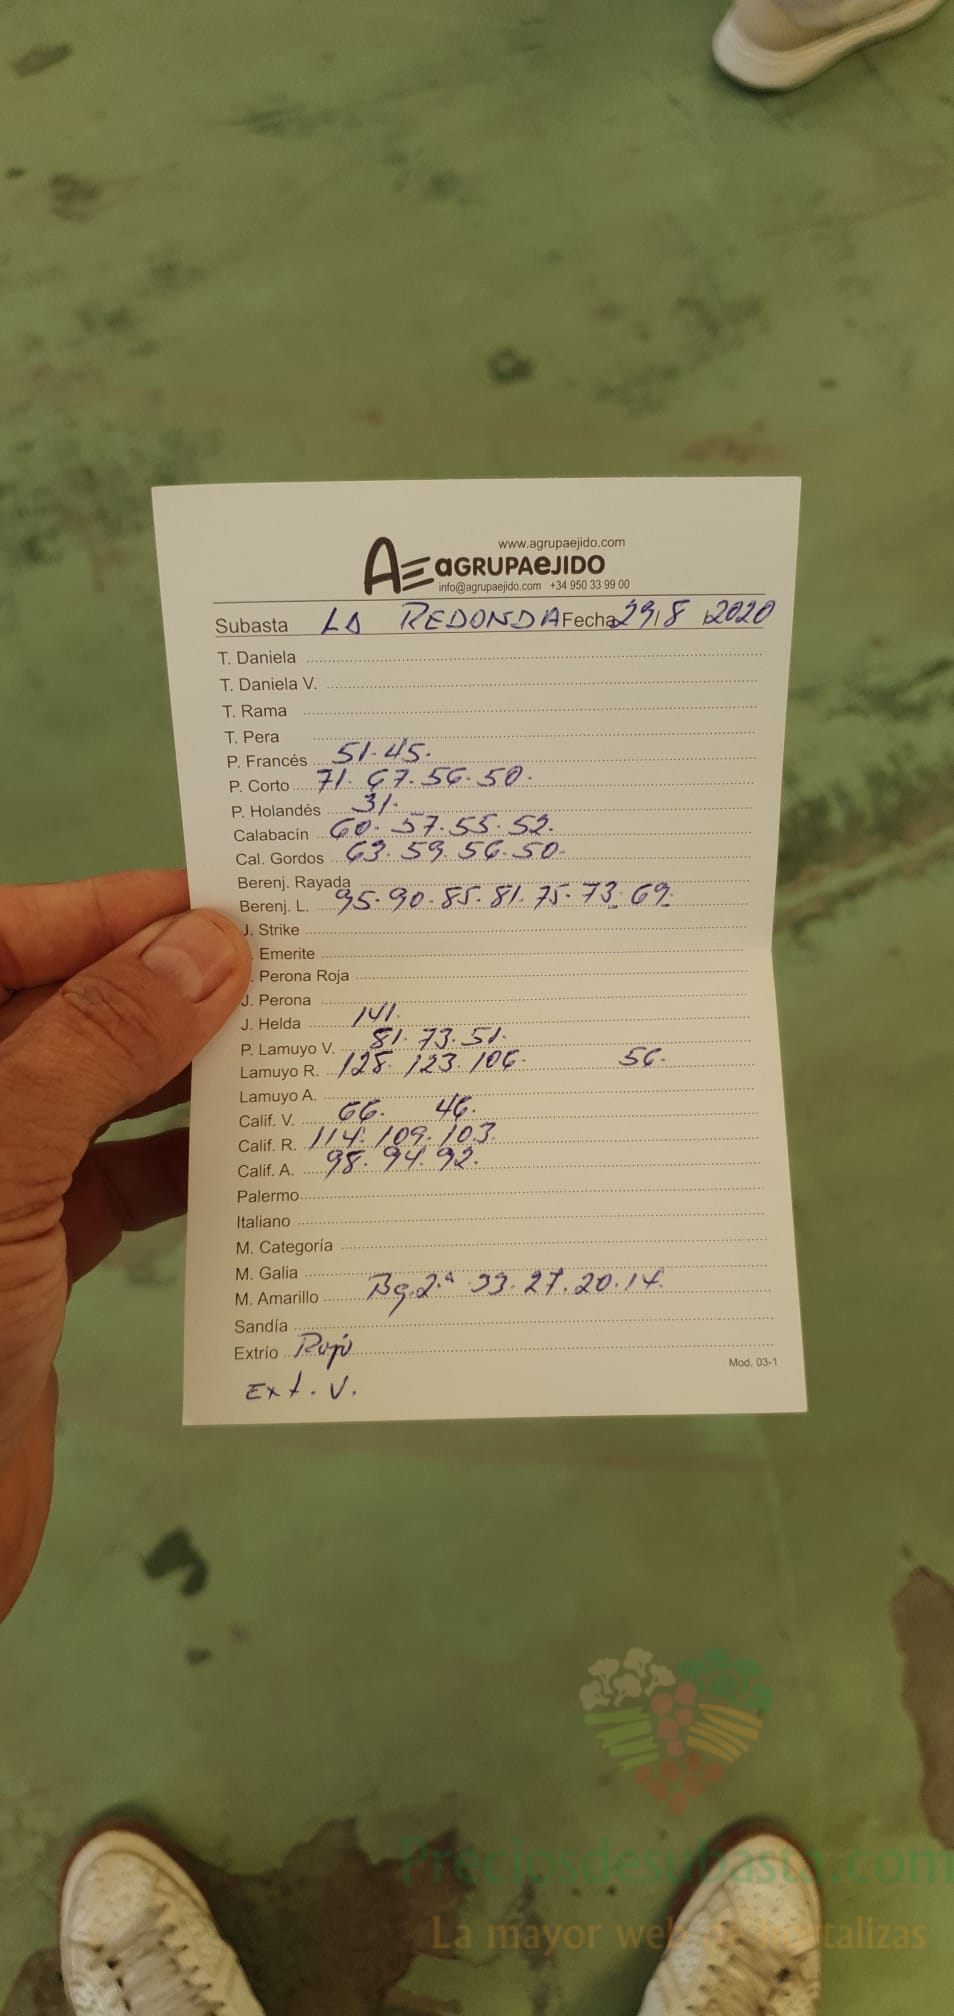 www.agrupaejido.com
AE aGRUPAeJIDO
info@agrupaejido.com +34 950 33 99 00
Subasta LA REDONDA Fecha 29/8/2020
T. Daniela
T. Daniela V.
T. Rama
T. Pera
P. Francés 51.45.
P. Corto 71.67.56.50.
P. Holandés 31.
Calabacín 60.57.55.52.
Cal. Gordos 63.59.56.50.
Berenj. Rayada
Berenj. L. 95.90.85.81.75.73.69.
J. Strike
. Emerite
. Perona Roja
J. Perona
J. Helda 141.
P. Lamuyo V. 81.73.51.
Lamuyo R. 128.123.106. 56.
Lamuyo A.
Calif. V. 66. 46.
Calif. R. 114.109.103.
Calif. A. 98.94.92.
Palermo
Italiano
M. Categoría
M. Galia
M. Amarillo Bg.2.ª 33.27.20.14.
Sandía
Extrío Rojo
Mod. 03-1
Ext. V.
Preciosdesubasta.com
La mayor web de hortalizas